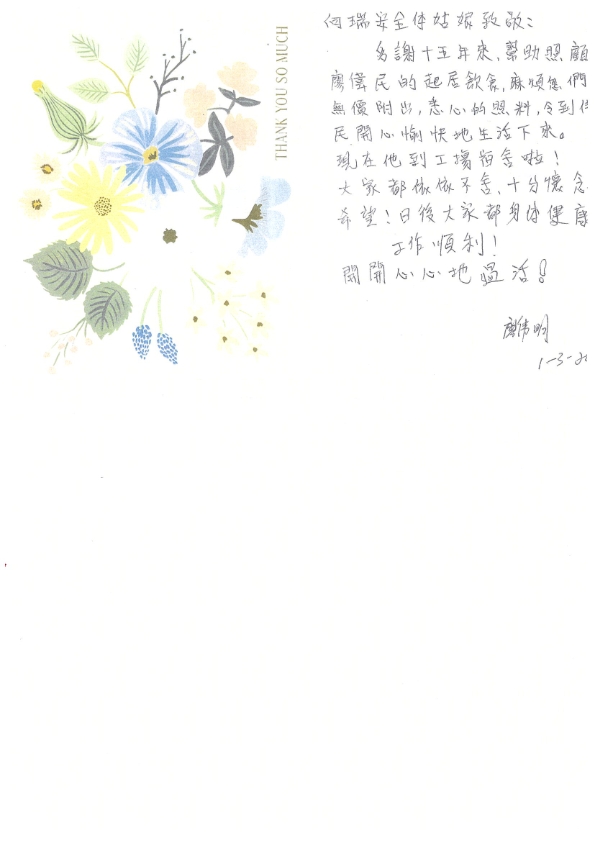 THANK YOU SO MUCH
向瑞安全体姑娘致敬：
多謝十五年來，幫助照顧
廖偉民的起居飲食，麻煩您們
無償附出，悉心的照料，令到偉
民開心愉快地生活下來。
現在他到工場宿舍啦！
大家都依依不舍，十分懷念
希望！日後大家都身体健康
工作順利！
開開心心地過活！
廖偉明
1-3-2